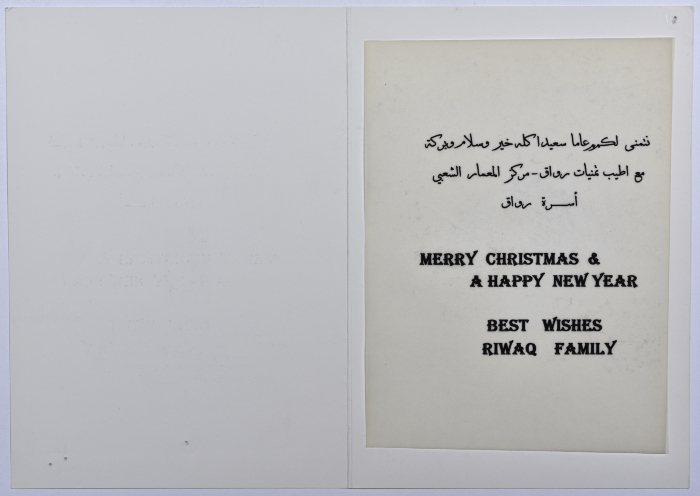 نتمنى لكم عاما سعيدا كله خير وسلام وبركة
مع اطيب تمنيات رواق - مركز المعمار الشعبي
أسرة رواق
MERRY CHRISTMAS &
A HAPPY NEW YEAR
BEST WISHES
RIWAQ FAMILY